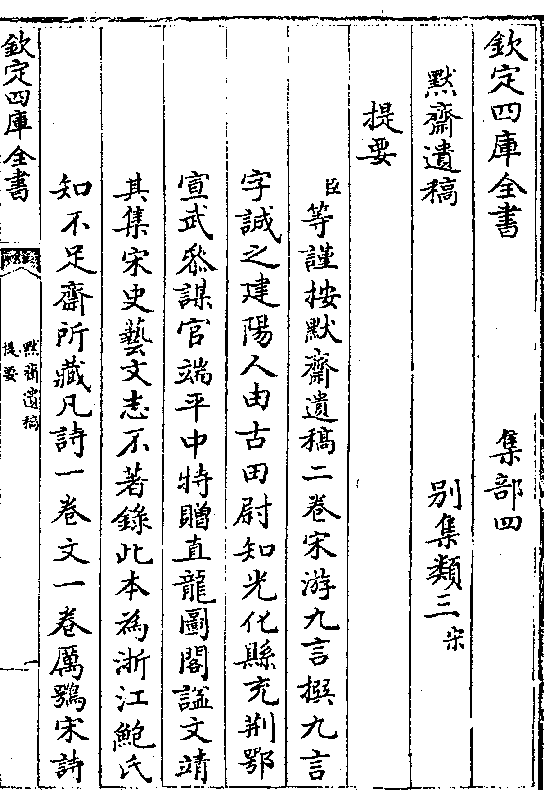 欽定四庫全書　集部四
默齋遺稿　别集類三宋
提要
臣等謹按默齋遺稿二卷宋游九言撰九言
字誠之建陽人由古田尉知光化縣充荆鄂
宣武叅謀官端平中特贈直龍圖閣諡文靖
其集宋史藝文志不著錄此本為浙江鮑氏
知不足齋所藏凡詩一卷文一卷厲鶚宋詩
欽定四庫全書
默齋遺稿
提要